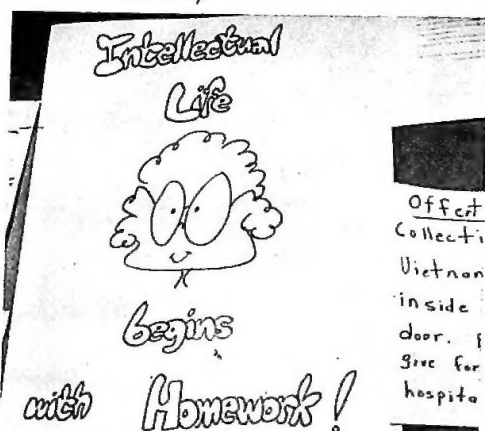 Intellectual
Life
begins
with Homework!
Collecti
Vietnam
inside
door.
give for
hospita